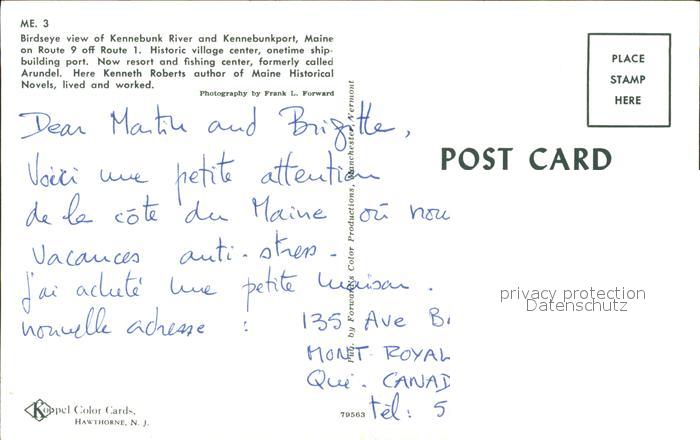 ME. 3
Birdseye view of Kennebunk River and Kennebunkport, Maine
on Route 9 off Route 1. Historic village center, onetime ship-
building port. Now resort and fishing center, formerly called
Arundel. Here Kenneth Roberts author of Maine Historical
Novels, lived and worked.
Photography by Frank L. Forward
PLACE
STAMP
HERE
POST CARD
Pub. by Forward's Color Productions, Manchester, Vermont
Dear Martin and Brigitte,
Voici une petite attention
de la côte du Maine où nou
vacances anti-stress.
j'ai acheté une petite maison.
nouvelle adresse :
135 Ave B
MONT ROYAL
Qué. CANAD
tél: 5
privacy protection
Datenschutz
Koppel Color Cards,
HAWTHORNE, N. J.
79563